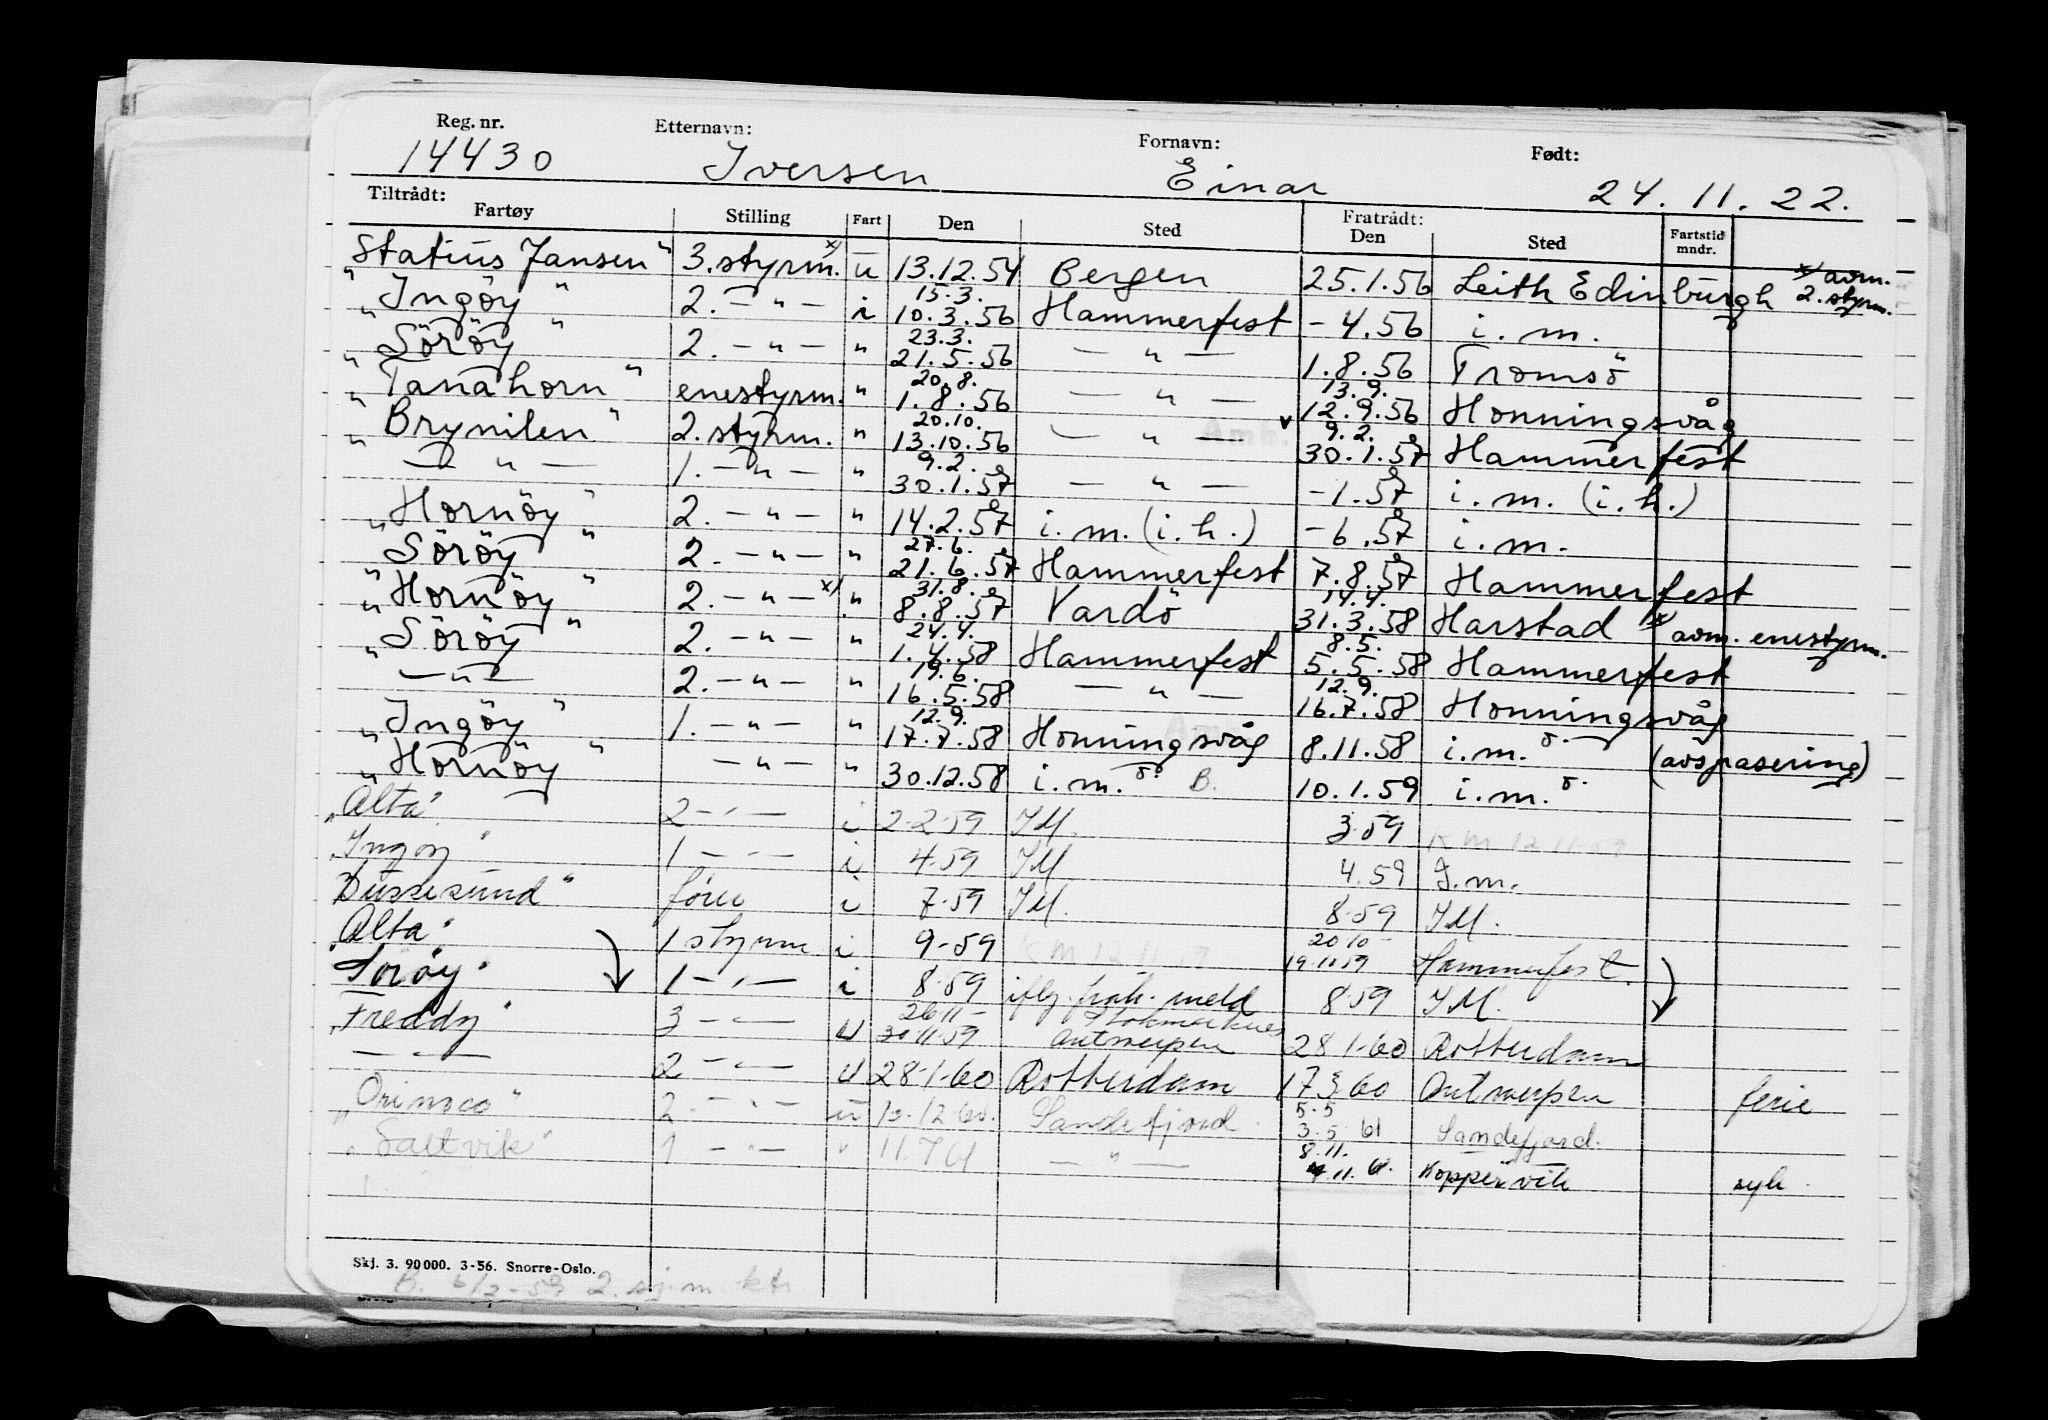 Reg. nr. Etternavn: Fornavn: Født:
14430 Iversen Einar 24.11.22.
Tiltrådt: Fratrådt:
Fartøy Stilling Fart Den Sted Den Sted Fartstid mndr.
Statius Jansen" 3. styrm. x) u 13.12.54 Bergen 25.1.56 Leith Edinburgh x) avm. 2. styrm.
"Ingöy" 2. — " — i 15.3. 10.3.56 Hammerfest - 4.56 i.m.
"Söröy" 2. — " — " 23.3. 21.5.56 — " — 1.8.56 Tromsö
"Tanahorn" enestyrm. " 20.8. 1.8.56 — " — 13.9. 12.9.56 Honningsvåg
"Brynilen" 2. styrm. " 20.10. 13.10.56 — " — v 9.2. 30.1.57 Hammerfest
— " — 1. — " — " 9.2. 30.1.57 — " — - 1.57 i.m. (i.h.)
"Hornöy" 2. — " — " 14.2.57 i.m. (i.h.) - 6.57 i.m.
"Söröy" 2. — " — " 27.6. 21.6.57 Hammerfest 7.8.57 Hammerfest
"Hornöy" 2. — " — x) " 31.8. 8.8.57 Vardö 14.4. 31.3.58 Harstad x) avm. enestyrm.
"Söröy" 2. — " — " 24.4. 1.4.58 Hammerfest 8.5. 5.5.58 Hammerfest
— " — 2. — " — " 19.6. 16.5.58 — " — 12.9. 16.7.58 Honningsvåg
"Ingöy" 1. — " — " 12.9. 17.7.58 Honningsvåg 8.11.58 i.m. ö. (avspasering)
"Hornöy" — " — " 30.12.58 i.m. ö. B. 10.1.59 i.m. ö.
"Alta" 2 — " — i 2.2.59 IM. 3.59 KM 12.11.59
"Ingöy" 1 — " — i 4.59 IM 4.59 I.m.
"Bussesund" förer i 7.59 IM. 8.59 IM.
"Alta" 1 styrm. i 9-59 KM 12.11.59 20.10 - 19.11.59 Hammerfest.
"Söröy" 1 — " — i 8.59 iflg. frah. meld 8.59 IM.
"Freddy" 3 — " — U 26.11 - 30.11.59 Stokmarknes Antwerpen 28.1-60 Rotterdam
— " — 2 — " — U 28-1-60 Rotterdam 17 60 Antwerpen ferie
"Orinoco" 2. — " — u 12.60. Sandefjord. 5.5 3.5.61 Sandefjord.
"Saltvik" 1. — " — " 11.7.61 — " — 8.11. 4.11.61. Koppervik syk.
Skj. 3. 90000. 3-56. Snorre-Oslo.
B. 6/2-59 2. sj.m. ktr.